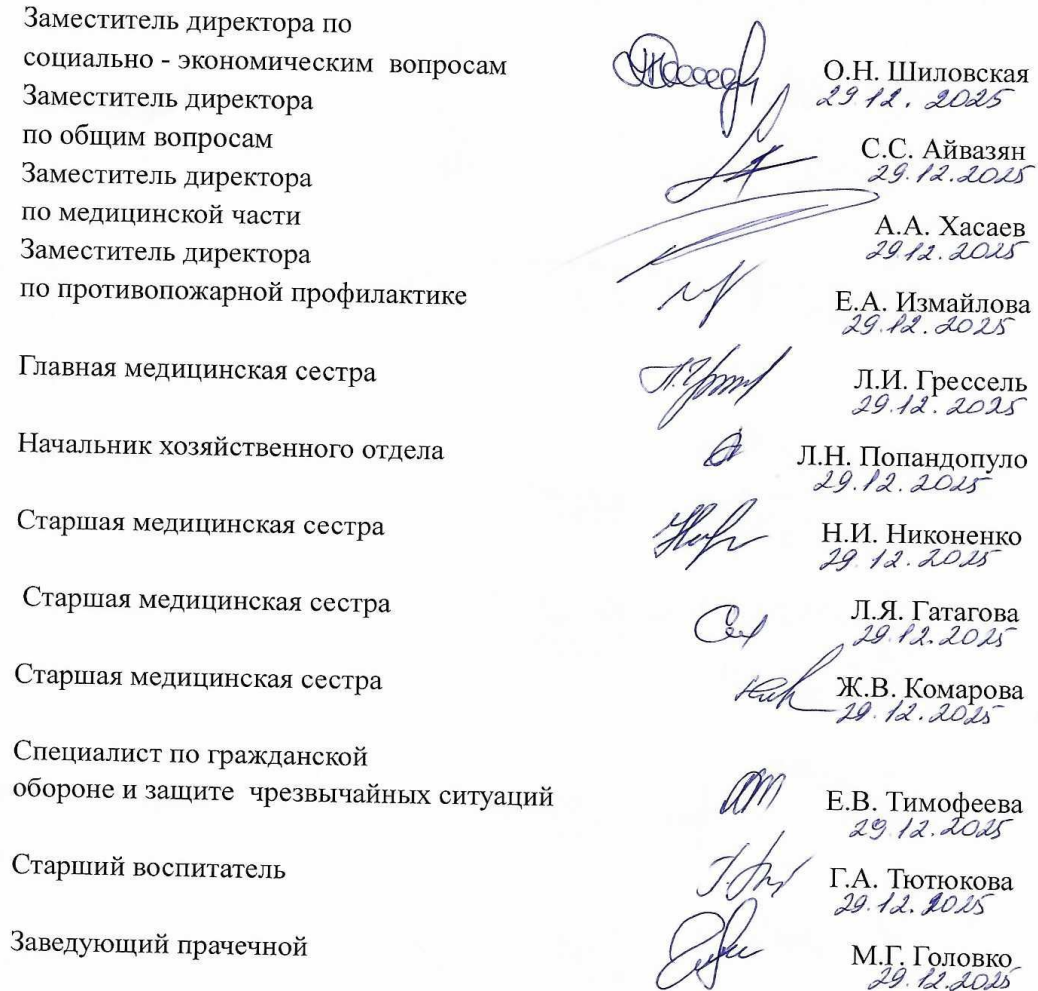 Заместитель директора по
социально - экономическим вопросам О.Н. Шиловская
29.12.2025
Заместитель директора
по общим вопросам С.С. Айвазян
29.12.2025
Заместитель директора
по медицинской части А.А. Хасаев
29.12.2025
Заместитель директора
по противопожарной профилактике Е.А. Измайлова
29.12.2025
Главная медицинская сестра Л.И. Грессель
29.12.2025
Начальник хозяйственного отдела Л.Н. Попандопуло
29.12.2025
Старшая медицинская сестра Н.И. Никоненко
29.12.2025
Старшая медицинская сестра Л.Я. Гатагова
29.12.2025
Старшая медицинская сестра Ж.В. Комарова
29.12.2025
Специалист по гражданской
обороне и защите чрезвычайных ситуаций Е.В. Тимофеева
29.12.2025
Старший воспитатель Г.А. Тютюкова
29.12.2025
Заведующий прачечной М.Г. Головко
29.12.2025